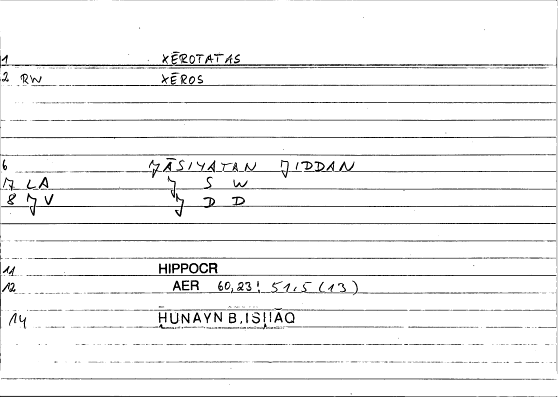 1 XĒROTATAS
2 RW XĒROS
6 JĀSIYATAN JIDDAN
7 LA J S W
8 JV J D D
11 HIPPOCR
12 AER 60,23! 51,5 (13)
14 ḤUNAYN B,ISḤĀQ